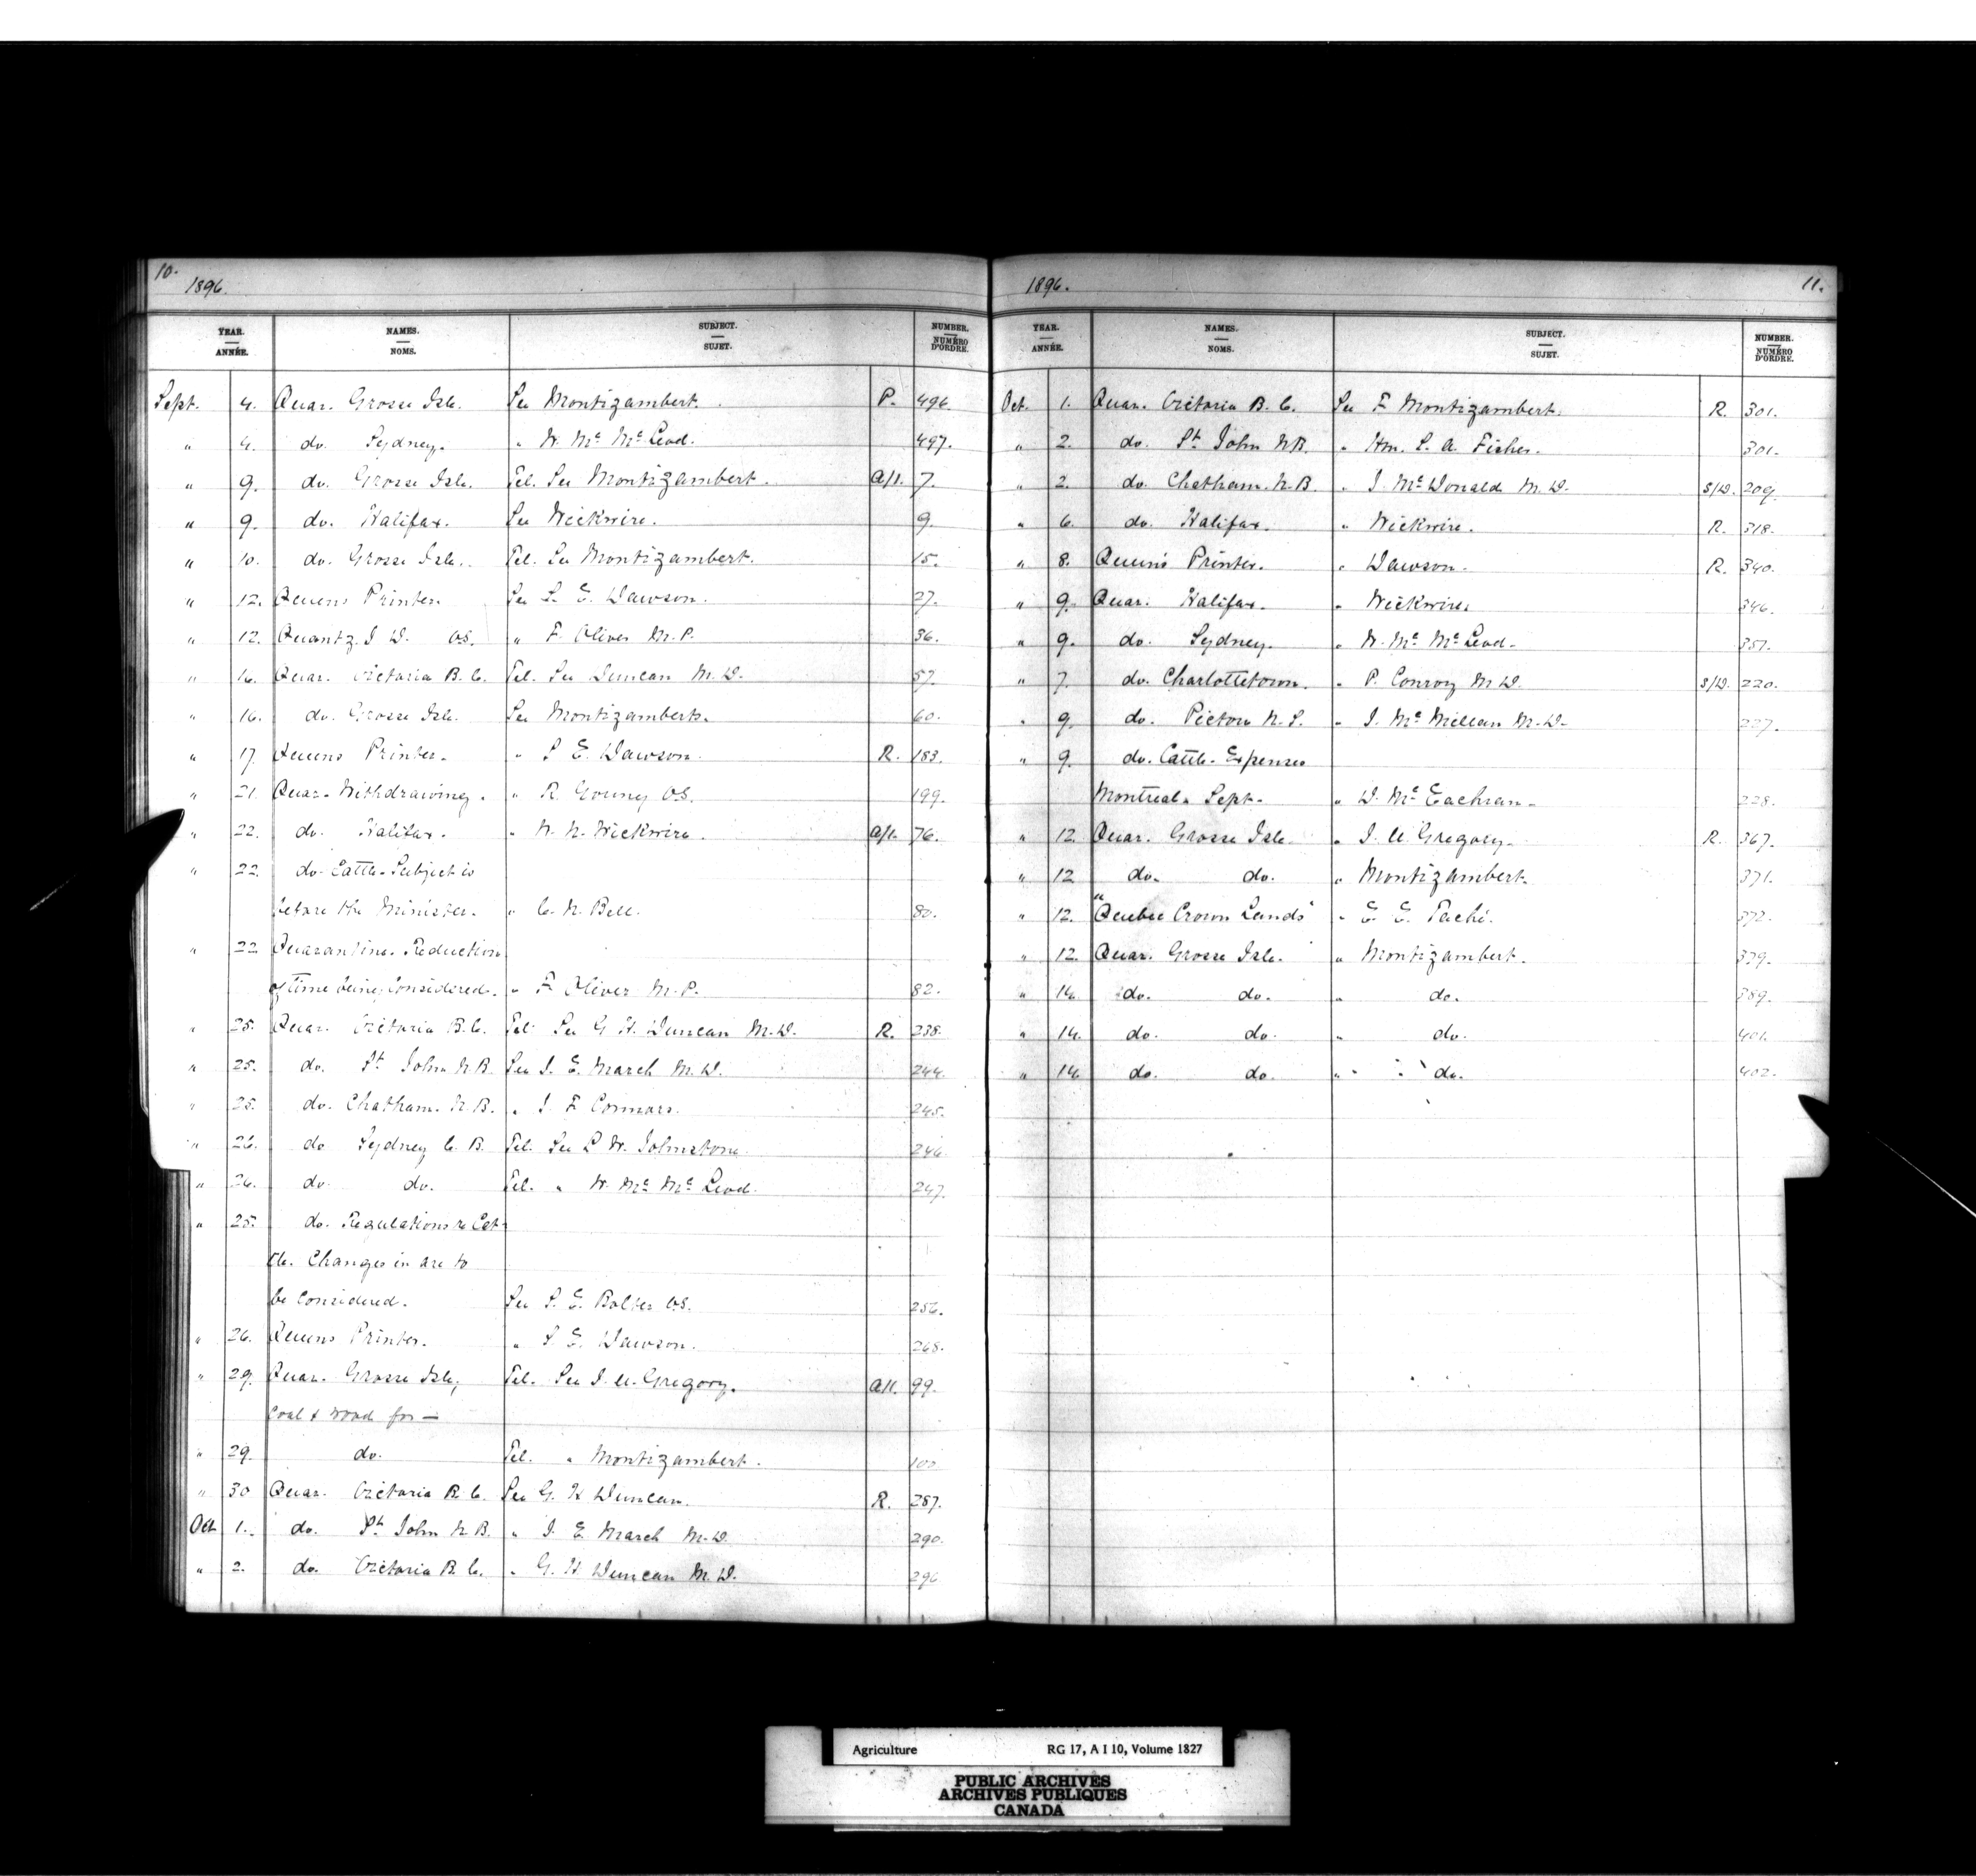 10.
1896.
YEAR. NAMES. SUBJECT. NUMBER.
ANNÉE. NOMS. SUJET. NUMÉRO D'ORDRE.
Sept. 4. Quar. Grosse Isle. See Montizambert. P. 496.
" 4. do. Sydney. " W. Mc McLeod. 497.
" 9. do. Grosse Isle. Tel. See Montizambert. A/1. 7.
" 9. do. Halifax. See Wickwire. 9.
" 10. do. Grosse Isle. Tel. See Montizambert. 15.
" 12. Queens Printer. See S. E. Dawson. 27.
" 12. Quantz. J. D. OS. " F. Oliver M.P. 36.
" 16. Quar. Victoria B.C. Tel. See Duncan M.D. 57.
" 16. do. Grosse Isle. See Montizambert. 60.
" 17. Queens Printer. " S E. Dawson. R. 183.
" 21. Quar. Withdrawing. " R. OS. 199.
" 22. do. Halifax. " W. N. Wickwire. A/1. 76.
" 22. do. Cattle-Subject is
before the Minister. " C. N. Bell. 80.
" 22 Quarantine. Reduction
of time being Considered. " F. Oliver M.P. 82.
" 25. Quar. Victoria B.C. Tel. See G. H. Duncan M.D. R. 238.
" 25. do. St. John N.B. See J. E. March M.D. 244.
" 25. do. Chatham. N.B. " J. F. Connors. 245.
" 26. do Sydney C. B. Tel. See L W. Johnstone. 246.
" 26. do. do. Tel. " W. Mc McLeod. 247.
" 25. do. Regulations re Cat-
tle. Changes in are to
be Considered. See S. E. Bolter OS. 256.
" 26. Queens Printer. " S. E. Dawson. 268.
" 29. Quar. Grosse Isle, Tel. See J. U. Gregory. A/1. 99.
Coal & wood for —
" 29. do. Tel. " Montizambert. 100.
" 30 Quar. Victoria B.C. See G. H Duncan. R. 287.
Oct. 1. do. St. John N.B. " J. E. March M.D. 290.
" 2. do. Victoria B.C. " G. H Duncan M.D. 296
1896.
11.
YEAR. NAMES. SUBJECT. NUMBER.
ANNÉE. NOMS. SUJET. NUMÉRO D'ORDRE.
Oct. 1. Quar. Victoria B.C. See F Montizambert. R. 301.
" 2. do. St. John N.B. " Hon. S. A. Fisher. 301.
" 2. do. Chatham. N.B. " J. McDonald M.D. S/D. 209.
" 6. do. Halifax. " Wickwire. R. 318.
" 8. Queen's Printer. " Dawson. R. 340.
" 9. Quar. Halifax. " Wickwire. 346.
" 9. do. Sydney. " W. Mc McLeod. 357.
" 7. do. Charlottetown. " P. Conroy M.D. S/D. 220.
" 9. do. Pictou N.S. " J. McMillan M.D. 227.
" 9. do. Cattle-Expenses
Montreal " Sept. " D. McEachran. 228.
" 12. Quar. Grosse Isle. " J. U Gregory. R. 367.
" 12 do. do. " Montizambert. 371.
" 12. "Quebec Crown Lands" " E. E. Taché. 372.
" 12. Quar. Grosse Isle. " Montizambert. 379.
" 14. do. do. " do. 389.
" 14. do. do. " do. 401.
" 14 do. do. " do. 402.
Agriculture RG 17, A I 10, Volume 1827
PUBLIC ARCHIVES
ARCHIVES PUBLIQUES
CANADA